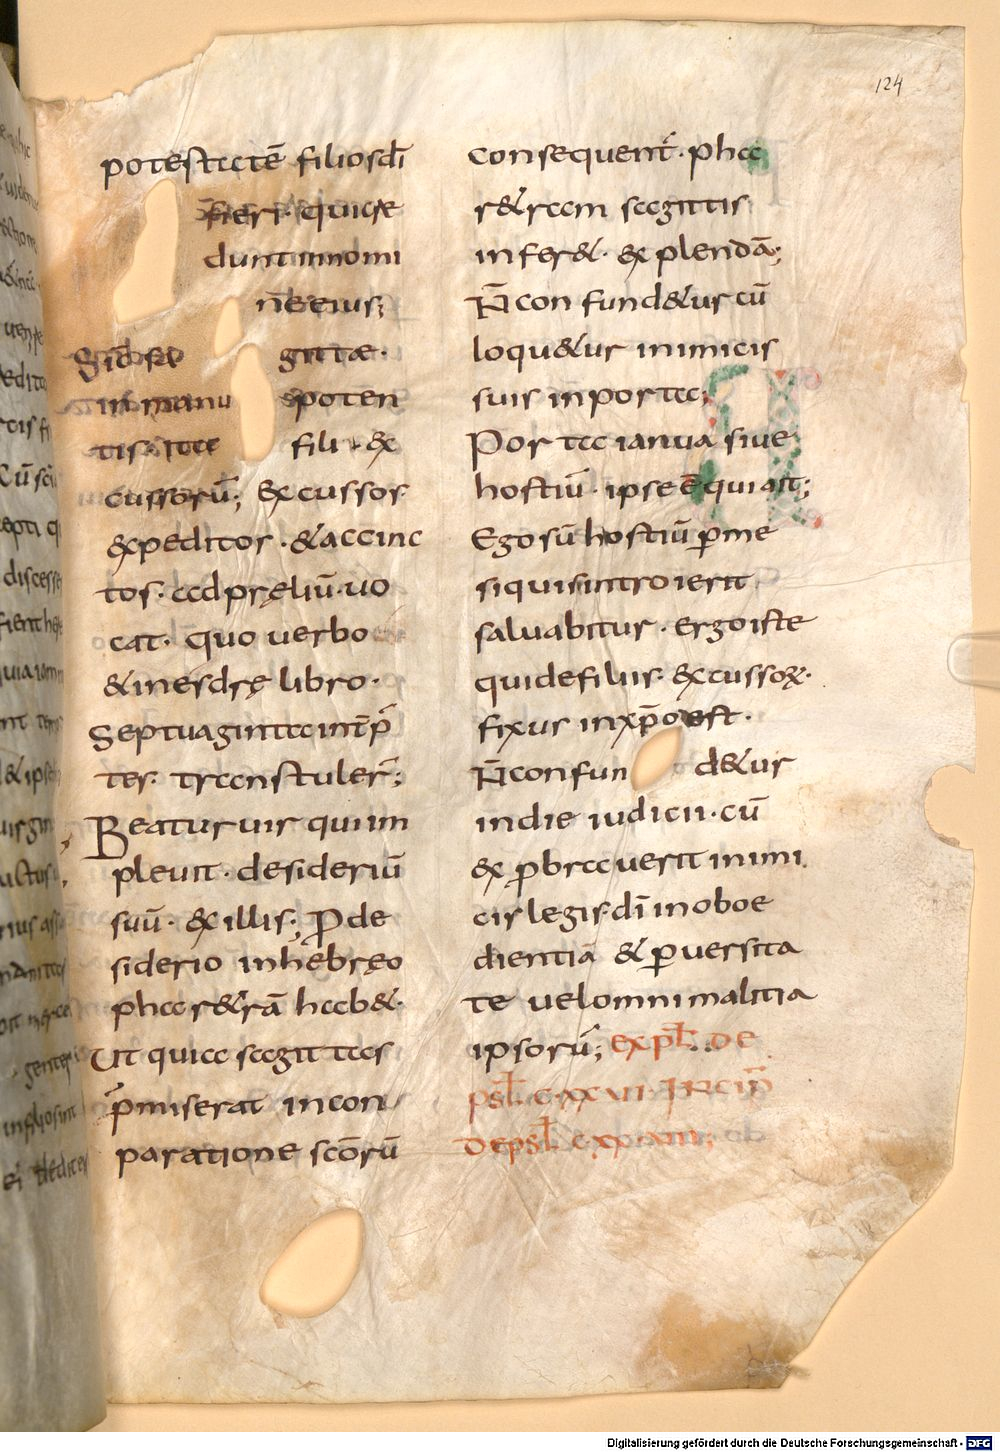 124
potestatē filios dī
fieri· equicre
dunt innomi
ne eius;
Sic sa gittæ·
in manu poten
tis· ita fili · ex
cussorū; Excussos
expeditos · &accinc
tos· ad pręliū· uo
cat· quo uerbo
& in esdrę libro·
Septuaginta int̄p̄
tes· transtuler̄;
Beatus uir qui im
pleuit · desideriū
suū· ex illis; Pro de
siderio in hebręo
phar&rā hab&·
Ut quia sagittas
p̄miserat in con
paratione scōrū
consequent̄· pha
r&ram sagittis
infer&· explendā;
N̄ confund&ur cū
loqu&ur inimicis
suis in porta;
Porta ianua siue
hostiū· ipse ē qui ait;
Ego sū hostiū per me
siquis introierit
saluabitur · ergo iste
qui de filiis· excussoꝝ·
fixus in xp̄o est·
N̄ confun d&ur
in die iudicii· cū
exprobrauerit inimi
cis legis dī inoboe
dientiā & peruersita
te uel omni malitia
ipsorū; expł· de
psł· c·xxui· Incip̄
de psł c·xxuii;
Digitalisierung gefördert durch die Deutsche Forschungsgemeinschaft - DFG